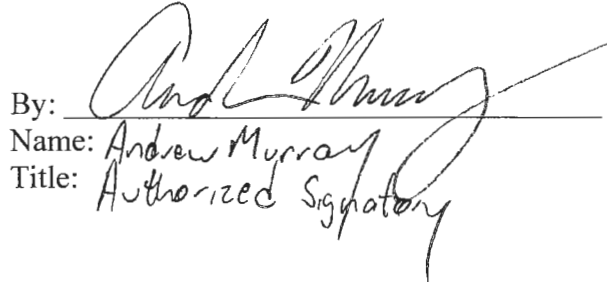 By: Andrew Murray
Name: Andrew Murray
Title: Authorized Signatory